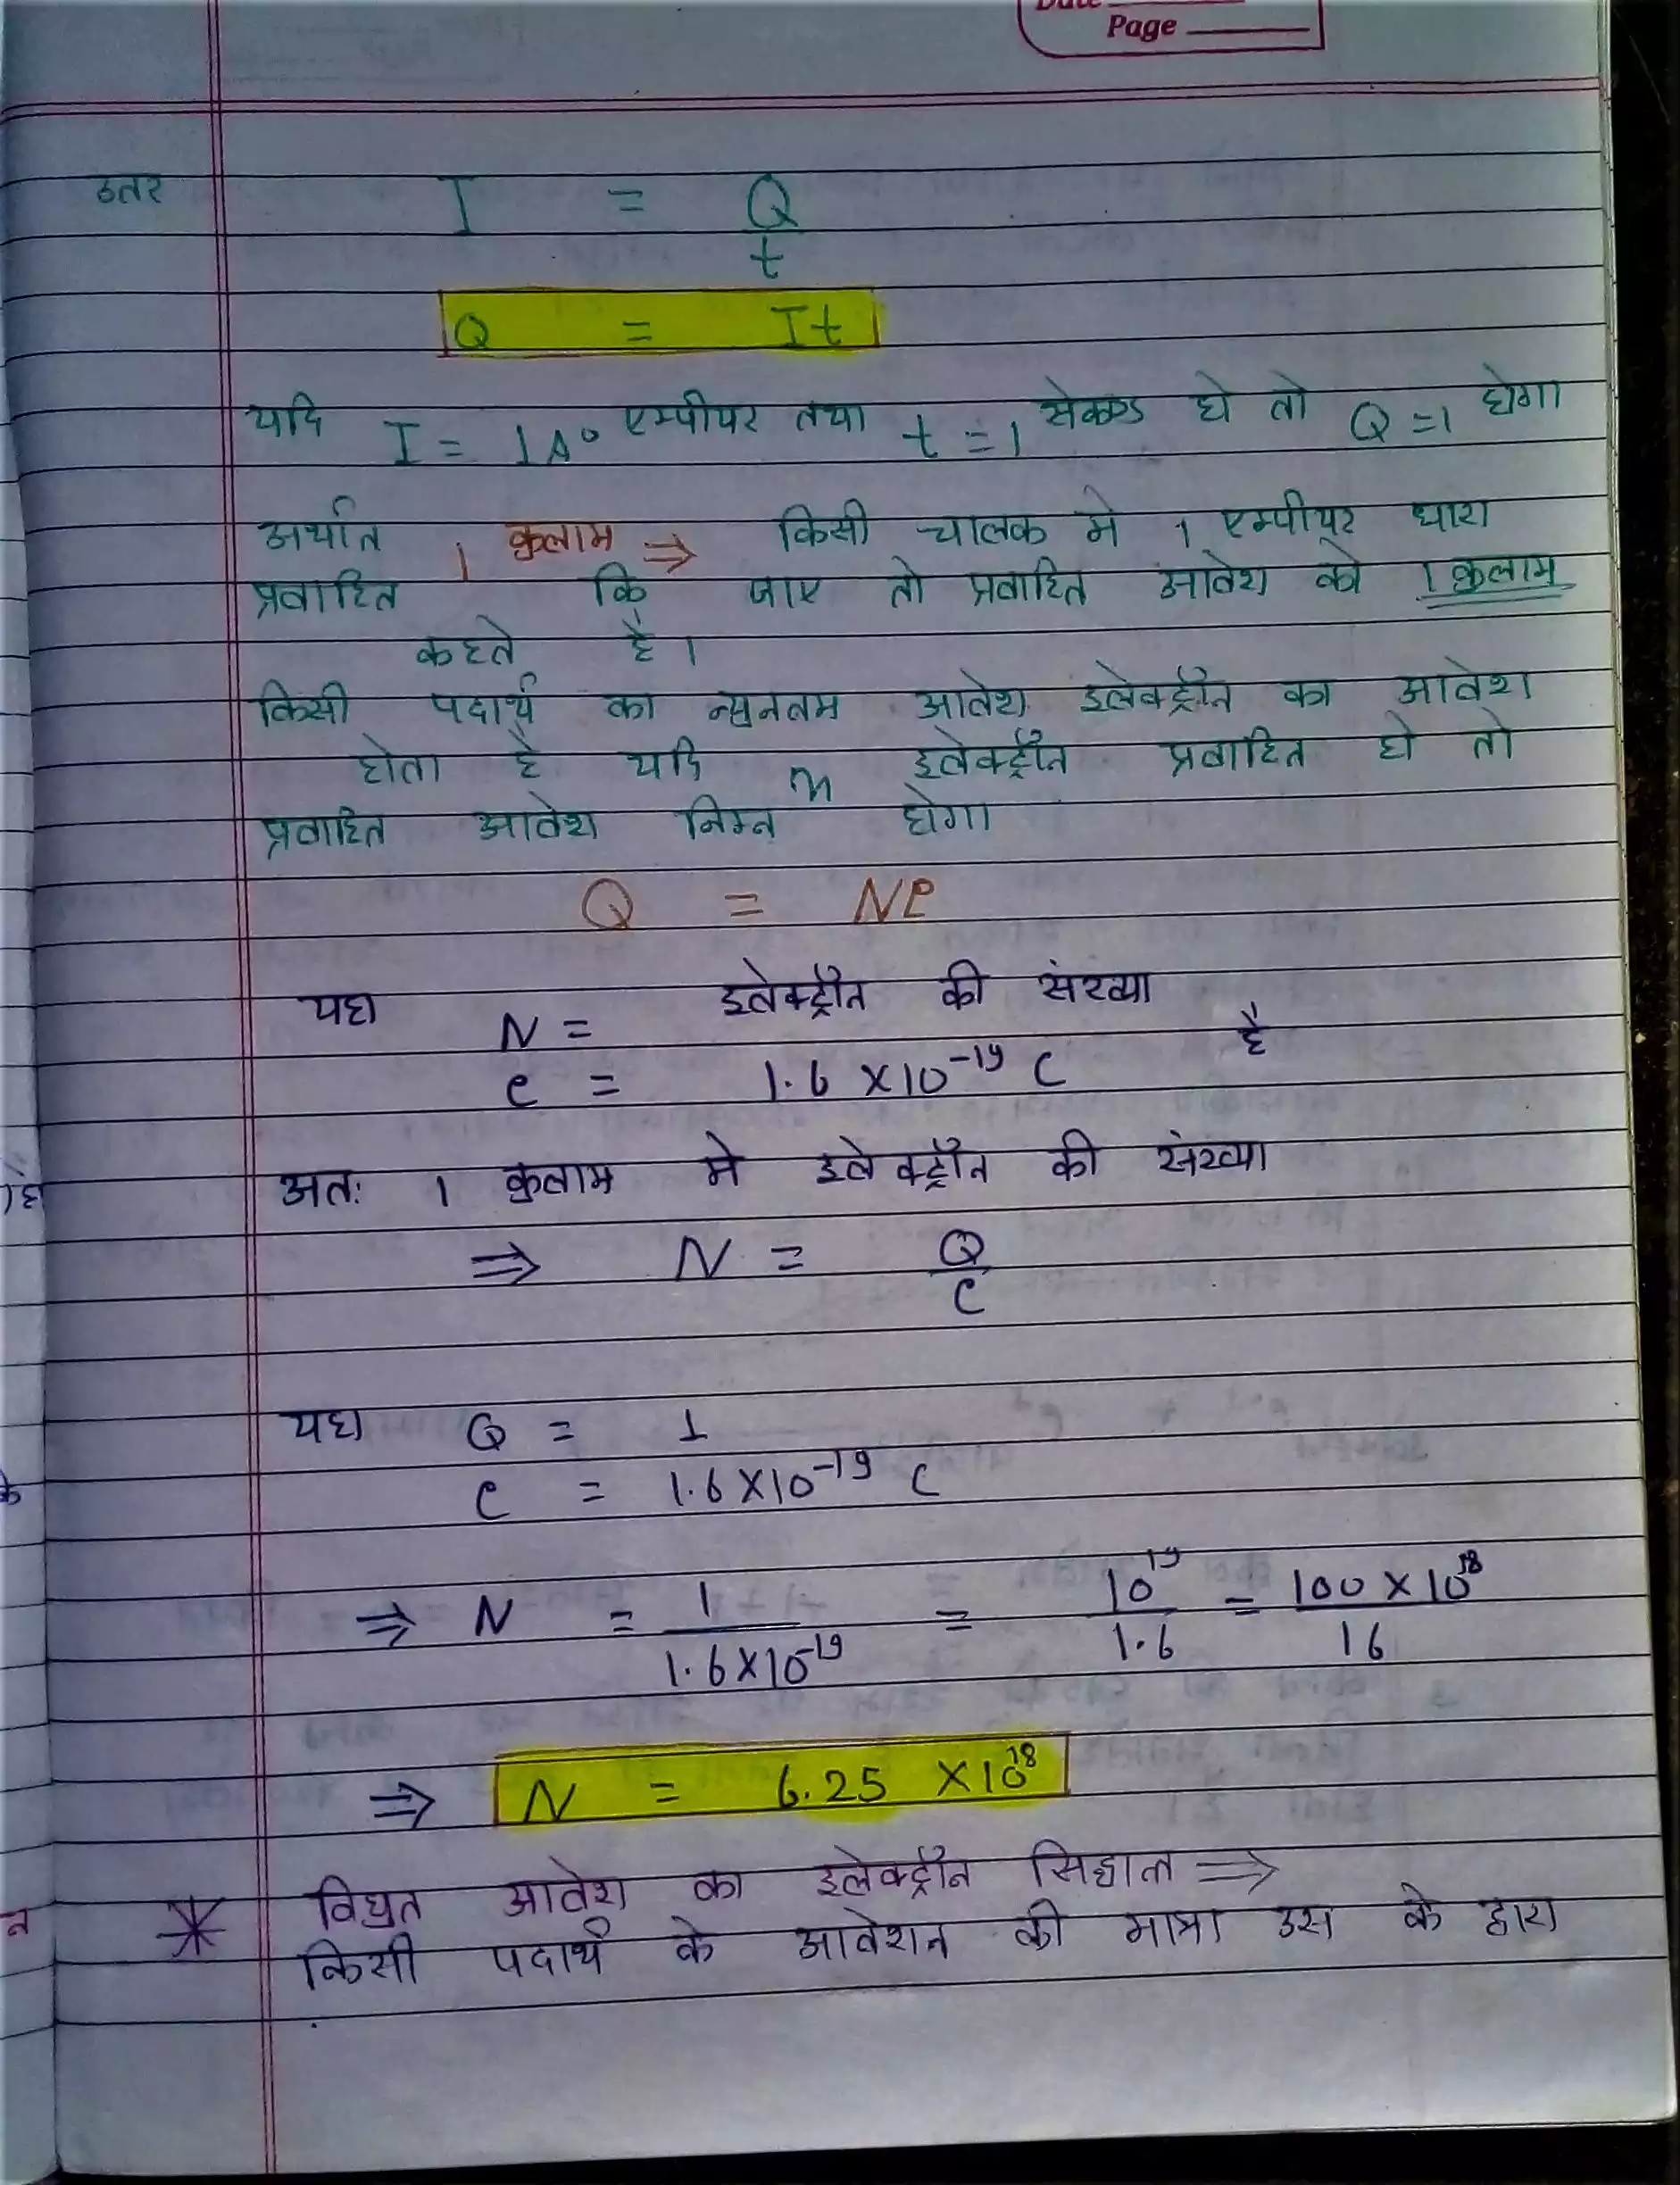 Date
Page
उतर I = Q/t
Q = It
यदि I = 1A° एम्पीयर तथा t = 1 सेकण्ड हो तो Q = 1 होगा
अर्थात 1 कुलाम ⇒ किसी चालक मे 1 एम्पीयर धारा
प्रवाहित कि जाए तो प्रवाहित आवेश को 1 कुलाम
कहते है।
किसी पदार्थ का न्युनतम आवेश इलेक्ट्रॉन का आवेश
होता है यदि n इलेक्ट्रॉन प्रवाहित हो तो
प्रवाहित आवेश निम्न होगा
Q = Ne
यहा N = इलेक्ट्रॉन की संख्या
e = 1.6 ×10⁻¹⁹ C है
अतः 1 कुलाम मे इलेक्ट्रॉन की संख्या
⇒ N = Q/e
यहा Q = 1
e = 1.6×10⁻¹⁹ C
⇒ N = 1/1.6×10⁻¹⁹ = 10¹⁹/1.6 = 100×10¹⁸/16
⇒ N = 6.25 ×10¹⁸
* विधुत आवेश का इलेक्ट्रॉन सिद्धात ⇒
किसी पदार्थ के आवेशन की मात्रा उस के द्वारा